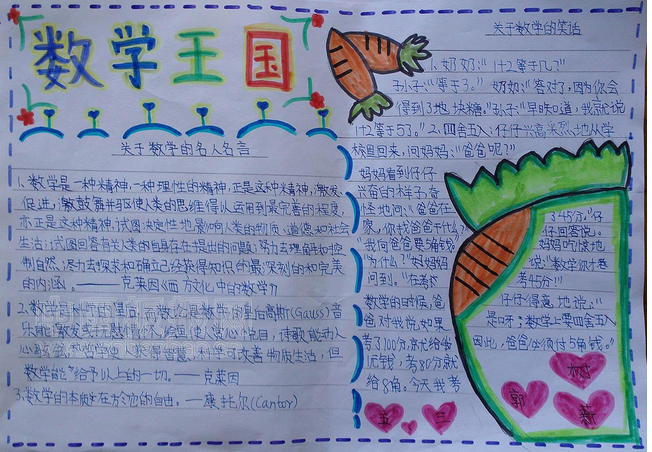 数学王国
关于数学的名人名言
1、数学是一种精神,一种理性的精神,正是这种精神,激发、
促进、鼓舞并驱使人类的思维得以运用到最完善的程度,
亦正是这种精神,试图决定性地影响人类的物质、道德和社会
生活;试图回答有关人类自身存在提出的问题;努力去理解和控
制自然;尽力去探求和确立已经获得知识的最深刻的和完美
的内涵。——克莱因《西方文化中的数学》
2、数学是科学的皇后,而数论是数学的皇后高斯(Gauss)音
乐能激发或抚慰情怀,绘画使人赏心悦目,诗歌能动人
心弦,哲学使人获得智慧,科学可改善物质生活,但
数学能给予以上的一切。——克莱因
3、数学的本质在于它的自由。——康托尔(Cantor)
关于数学的笑话
1、奶奶:“1+2等于几?”
孙子:“等于3。”奶奶:“答对了,因为你会
得到了3块糖。”孙子:“早知道,我就说
1+2等于5了。”2、四舍五入:仔仔兴高采烈地从学
校里回来,问妈妈:“爸爸呢?”
妈妈看到仔仔
兴奋的样子,奇
怪地问:“爸爸在
家,你找爸爸干什么?”
“我向爸爸要5角钱”
“为什么?”妈妈
问到。“在考
数学的时候,爸
爸对我说,如果
考了100分,就光给你
元钱,考80分就
给8角。今天我考
了45分。”仔
仔回答说。
妈妈吃惊地
说:“数学你才
考45分!”
仔仔得意地说:“
是呀;数学上要四舍五入
因此,爸爸必须付5角钱。”
林
郭
薪
五
三